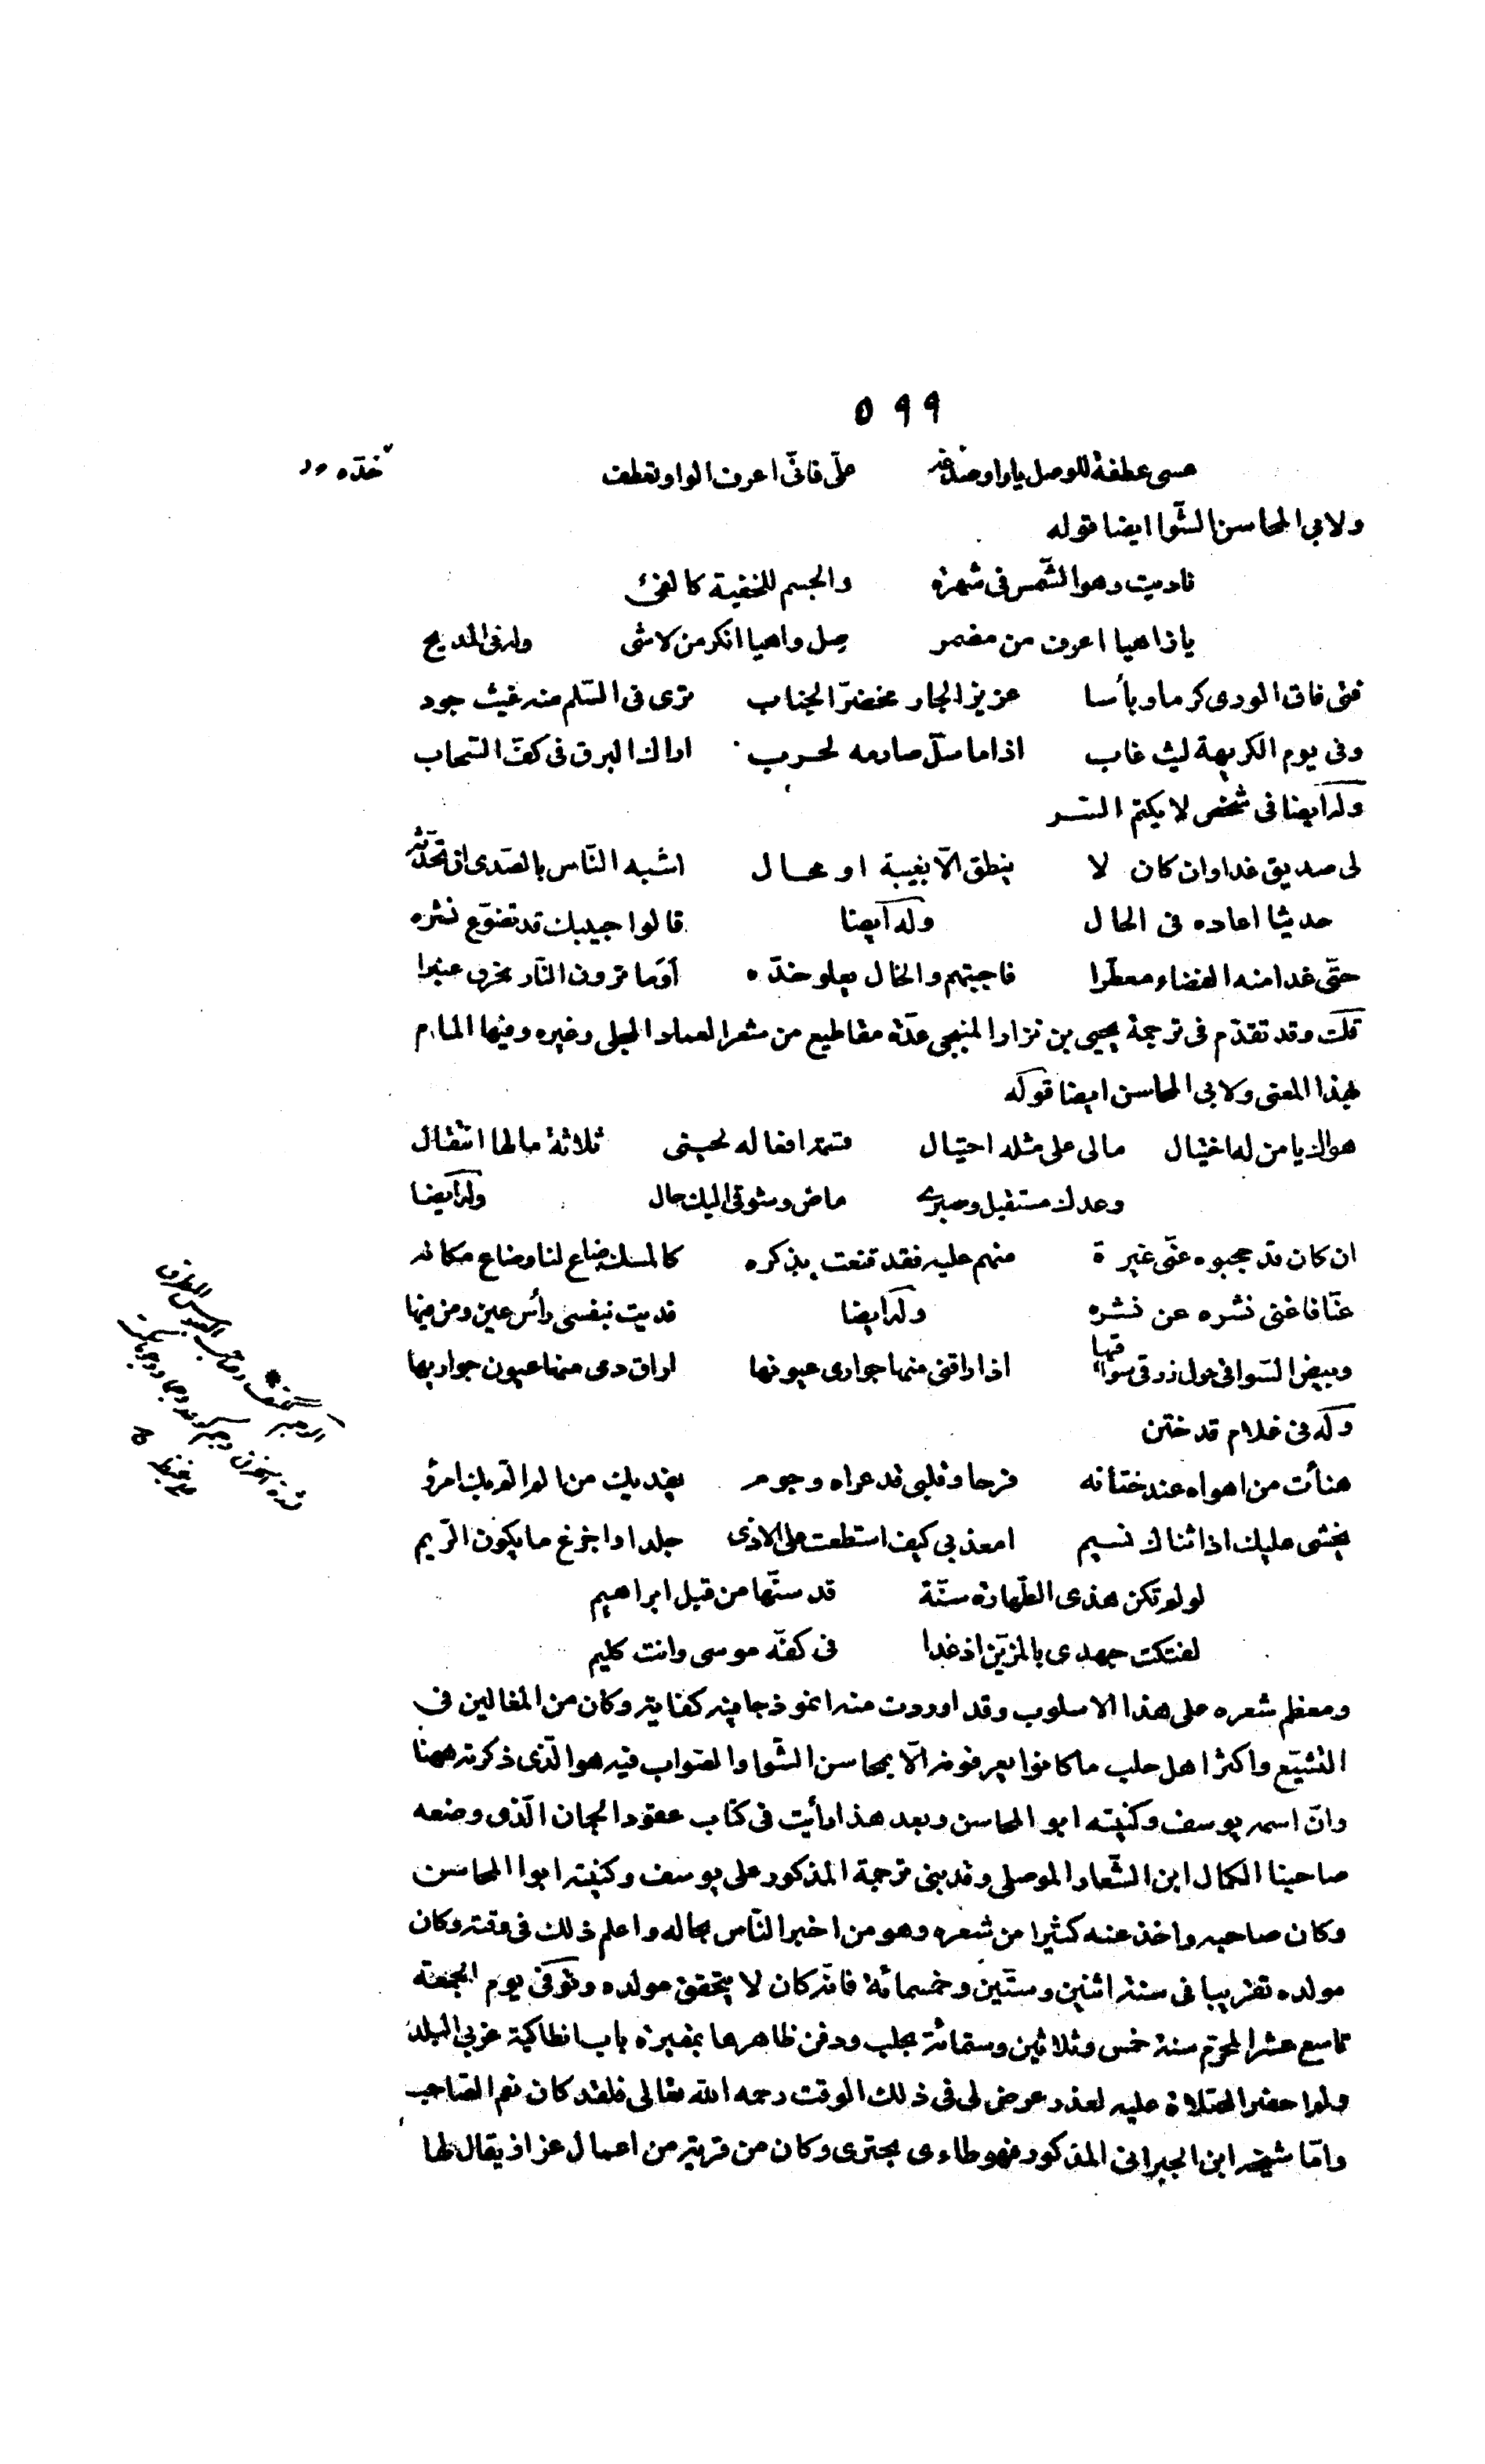 ٥٩٩
عسى عطفة للوصل ياواوصدغه علىّ فانّى اعرف الواو تعطف
خدّه
ولابي المحاسن الشّوا ايضا قوله
ناديت وهو الشّمس فى شهرة والجسم للخفية كالفئ
ياذاهيا اعرف من مضمر صِل واهيا انكر من لاشى وله فى المديح
فتى فاق الورى كرما وبأسا عزيز الجار مخضرّ الجناب ترى فى السّلم منه غيث جود
وفى يوم الكريهة ليث غاب اذا ما سلّ صارمه لحرب اراك البرق فى كفّ السّحاب
وله ايضا فى شخص لا يكتم السّر
لى صديق غدا وان كان لا ينطق الّا بغيبة او محال اشبه النّاس بالصّدى ان تحدّثه
حديثا اعاده فى الحال وله ايضا قالوا حبيبك قد تضوّع نشره
حتّى غدا منه الفضاء معطّرا فاجبتهم والخال يعلو خدّه أوَما ترون النّار تحرق عنبرا
قلت وقد تقدّم فى ترجمة يحيى بن نزار المنبجى عدّة مقاطيع من شعر العماد المحلى وغيره وفيها المام
بهذا المعنى ولابى المحاسن ايضا قوله
هواك يا من له اختيال مالى على مثله احتيال قسمة افعاله لحينى ثلاثة مالها انتقال
وعدك مستقبل وصبرى ماض وشوقى اليك حال وله ايضا
ان كان قد حجبوه عنّى غيرة منهم عليه فقد قنعت بذكره كالمسك ضاع لنا وضاع مكانه
عنّا فاغنى نشره عن نشره وله ايضا فديت بنفسى رأس عين ومن فيها
وبيض السّواقى حول زرق سواقيها اذا راقنى منها جوارى عيونها اراق دمى منها عيون جواريها
وله فى غلام قد ختن
هنأت من اهواه عند ختانه فرحا وقلبى قد عراه وجوم يفديك من الم الم بك امرؤ
يخشى عليك اذا ثناك نسيم امعذبى كيف استطعت على الاذى جلدا واجزع ما يكون الرّيم
لو لم تكن هذى الطّهارة سنّة قد سنّها من قبل ابراهيم
لفتكت جهدى بالمزيّن اذ غدا فى كفّه موسى وانت كليم
ومعظم شعره على هذا الاسلوب وقد اوردت منه انموذجا فيه كفاية وكان من المغالين فى
التشيّع واكثر اهل حلب ما كانوا يعرفونه الّا بمحاسن الشّوا والصّواب فيه هو الّذى ذكرته ههنا
وانّ اسمه يوسف وكنيته ابو المحاسن وبعد هذا رأيت فى كتاب عقود الجمان الّذى وضعه
صاحبنا الكمال ابن الشّعار الموصلى وقد بنى ترجمة المذكور على يوسف وكنيته ابوا المحاسن
وكان صاحبه واخذ عنه كثيرا من شعره وهو من اخبر النّاس بحاله واعلم ذلك فى وقته وكان
مولده تقريبا فى سنة اثنين وستّين وخمسمائة فانّه كان لا يتحقق مولده وتوفّى يوم الجمعة
تاسع عشر المحرّم سنة خمس وثلاثين وستمائة بحلب ودفن ظاهرها بمقبرة باب انطاكية غربي البلد
ولم احضر الصّلاة عليه لعذر عرض لى فى ذلك الوقت رحمه اللّه تعالى فلقد كان نعم الصّاحب
وامّا شيخه ابن الجبرانى المذكور فهو طاءى بحترى وكان من قرية من اعمال عزاز يقال لها